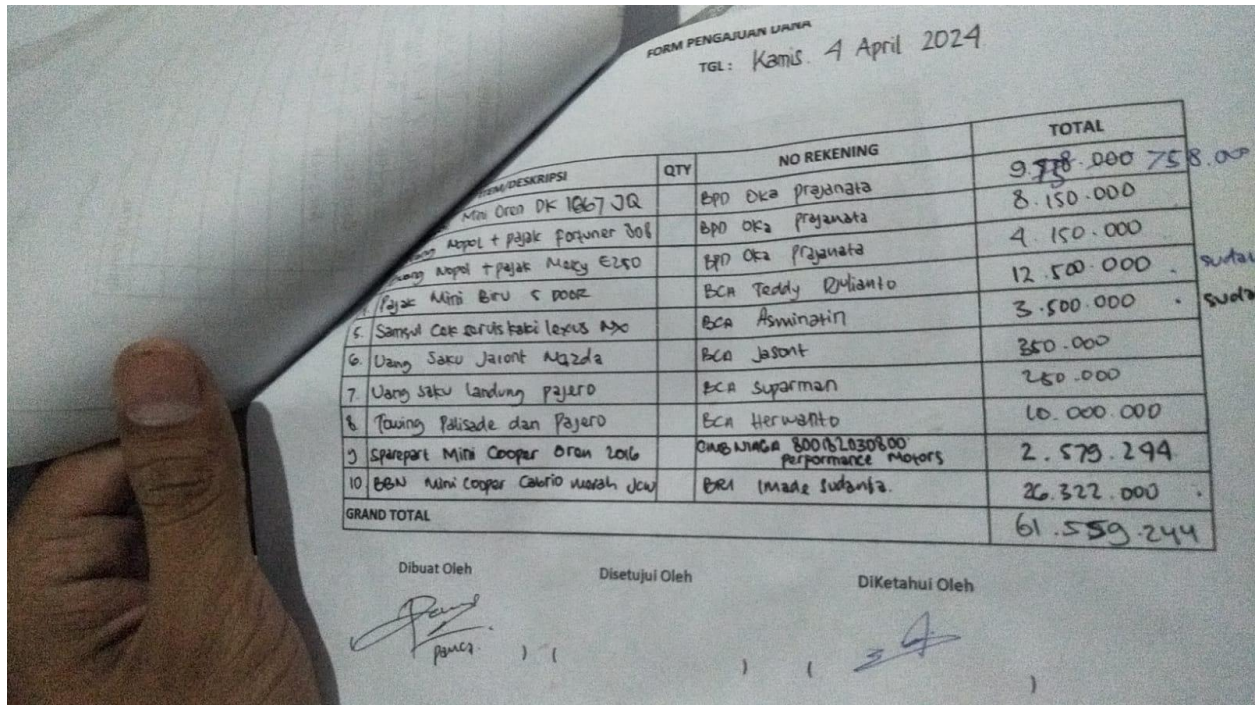 FORM PENGAJUAN DANA
TGL: Kamis. 4 April 2024
ITEM/DESKRIPSI QTY NO REKENING TOTAL
Mini Oren DK 1667 JQ BPD Oka Prajanata 9. .000 758.000
Nopol + pajak fortuner 808 BPD Oka Prajanata 8.150.000
Nopol + pajak Mercy E250 BPD Oka Prajanata 4.150.000
Pajak Mini Biru 5 DOOR BCA Teddy Djulianto 12.500.000 . sudah
5. Samsul Cek servis kaki lexus NX BCA Asminatin 3.500.000 . suda
6. Uang Saku Jasont Mazda BCA Jasont 350.000
7. Uang saku landung pajero BCA Suparman 250.000
8. Towing Palisade dan Pajero BCA Herwanto 10.000.000
9 Sparepart Mini Cooper Oren 2016 CIMB NIAGA 800182030800 Performance Motors 2.579.294
10 BBN Mini Cooper Cabrio merah Jcw BRI I made Sudansa. 26.322.000 .
GRAND TOTAL 61.559.244
Dibuat Oleh Disetujui Oleh DiKetahui Oleh
Panca. ) ( ) ( )